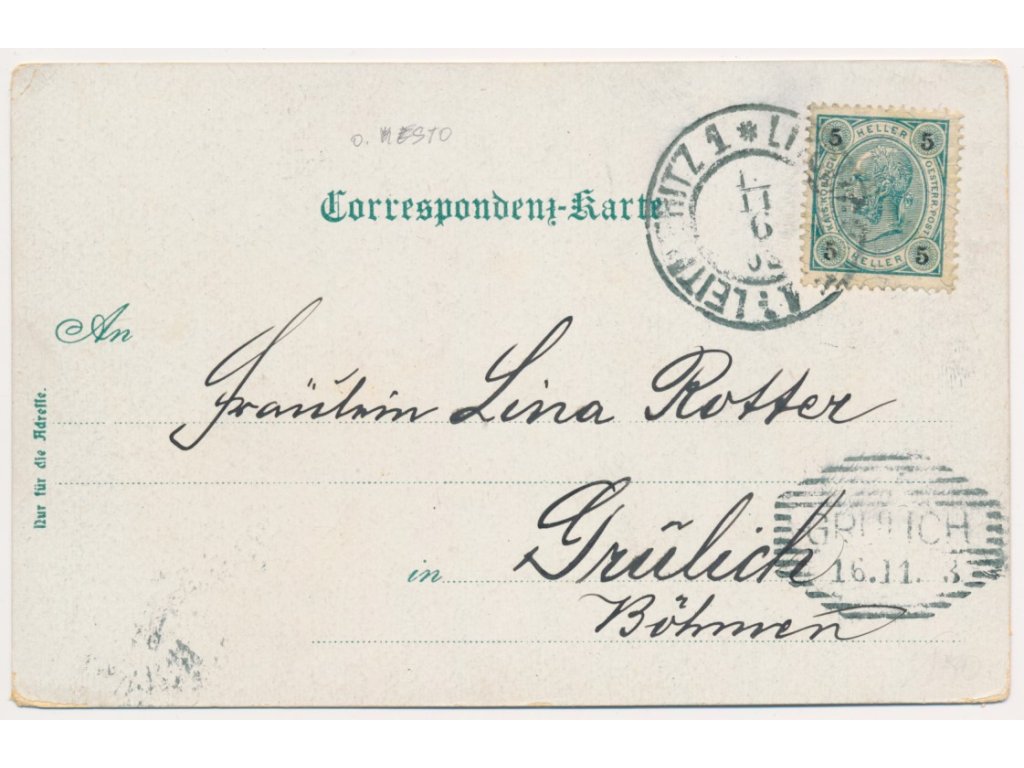 o. MESTO
Correspondenz-Karte
LEITMERITZ 1 * LI
11
6
5 HELLER 5
KAIS. KÖNIGL.
OESTERR. POST
5 HELLER 5
An
Fräulein Lina Rotter
Nur für die Adresse.
in Grülich
GRULICH
16.11. 3
Böhmen